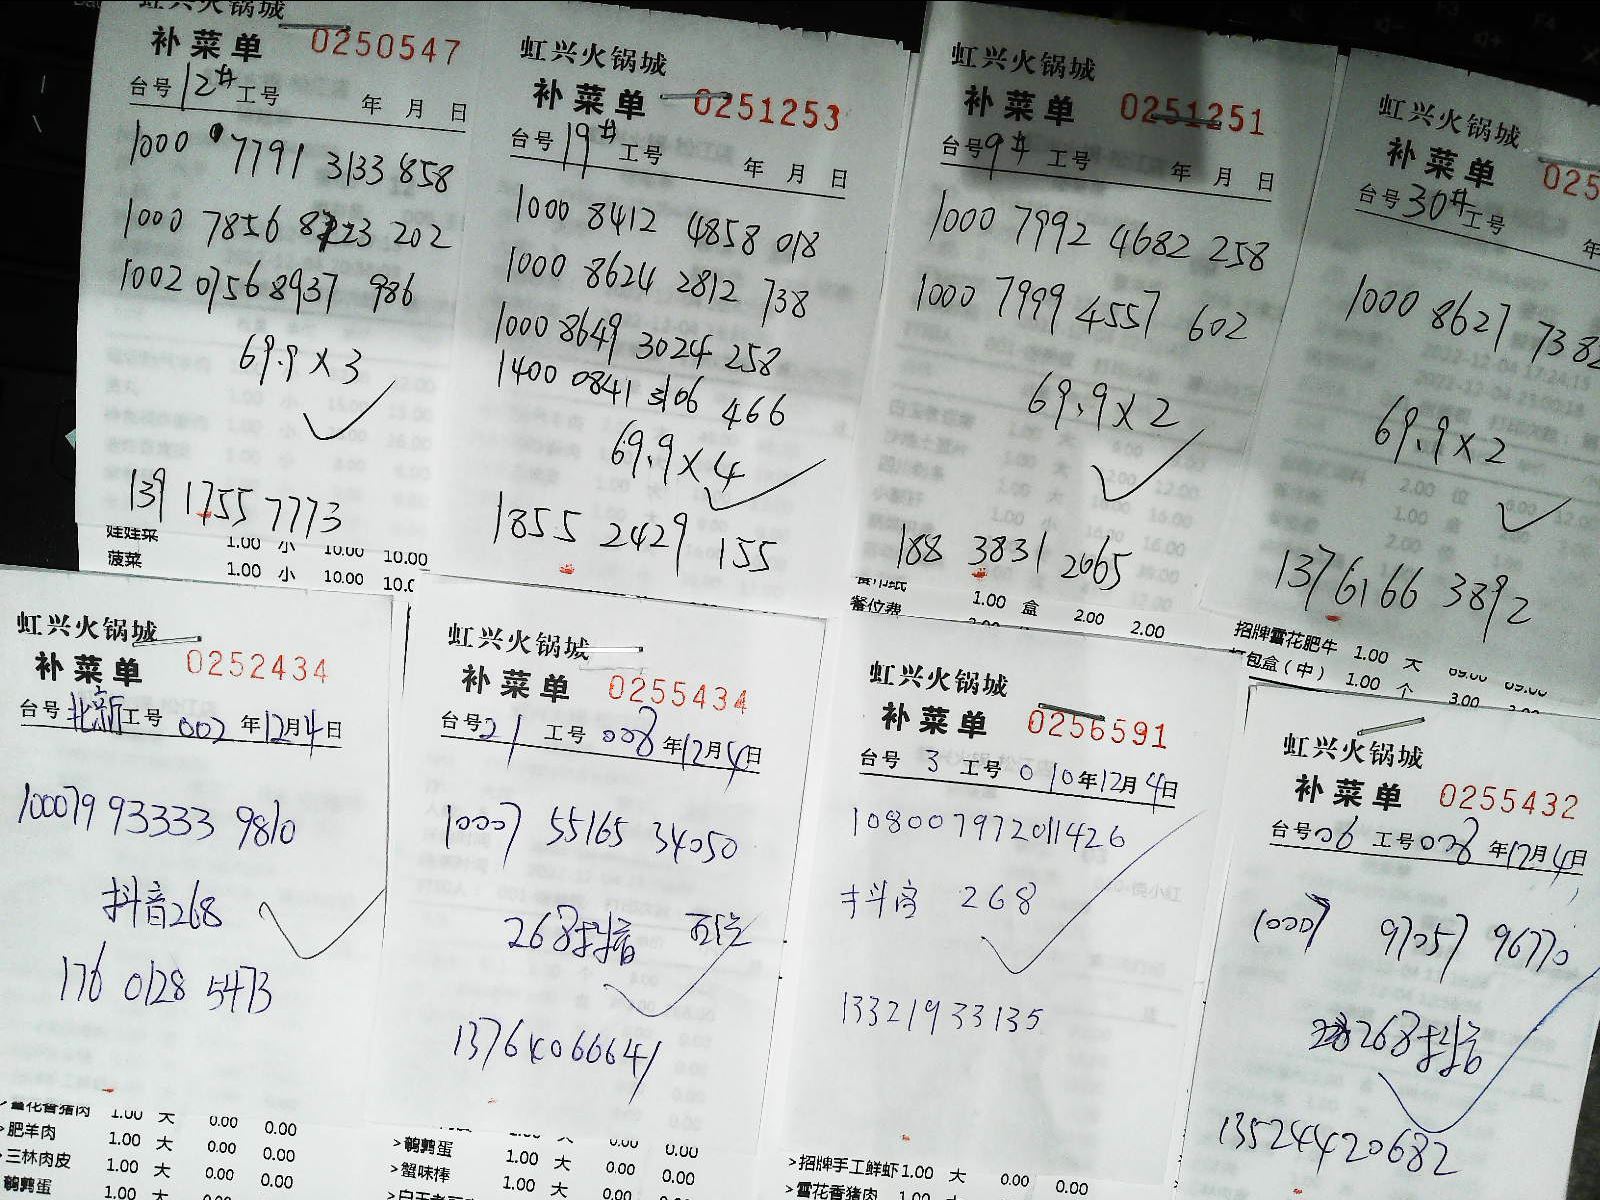 虹兴火锅城
补菜单 0250547
台号 12# 工号 年 月 日
1000 7791 3133 858
1000 7856 8223 202
1002 0756 8937 986
69.9×3
139 1755 7773
娃娃菜 1.00 小 10.00 10.00
菠菜 1.00 小 10.00
虹兴火锅城
补菜单 0251253
台号 19# 工号 年 月 日
1000 8412 4858 018
1000 8624 2812 738
1000 8649 3024 258
1400 0841 3106 466
69.9×4
1855 2429 155
虹兴火锅城
补菜单 0251251
台号 9# 工号 年 月 日
1000 7992 4682 258
1000 7999 4557 602
69.9×2
188 3831 2065
餐巾纸 1.00 盒 2.00 2.00
餐位费
虹兴火锅城
补菜单 025
台号 30# 工号 年
1000 8627 7382
69.9×2
137 6166 3892
招牌雪花肥牛 1.00 大 69.00 69.00
打包盒（中） 1.00 个 3.00
虹兴火锅城
补菜单 0252434
台号 工号 002 年 12月 4日
100079 93333 9810
抖音268
176 0128 5473
>雪花香猪肉 1.00 大 0.00 0.00
>肥羊肉 1.00 大 0.00 0.00
>三林肉皮 1.00 大 0.00 0.00
鹌鹑蛋 1.00 大 0.00
虹兴火锅城
补菜单 0255434
台号 21 工号 008 年 12月 4日
10007 55165 34050
268抖音
13764066641
>鹌鹑蛋 1.00 大 0.00 0.00
>蟹味棒 1.00 大 0.00 0.00
虹兴火锅城
补菜单 0256591
台号 3 工号 010 年 12月 4日
108007972011426
抖音 268
13321933135
>招牌手工鲜虾 1.00 大 0.00 0.00
>雪花香猪肉 1.00 大
虹兴火锅城
补菜单 0255432
台号 06 工号 008 年 12月 4日
10007 97057 96770
268抖音
13524420682